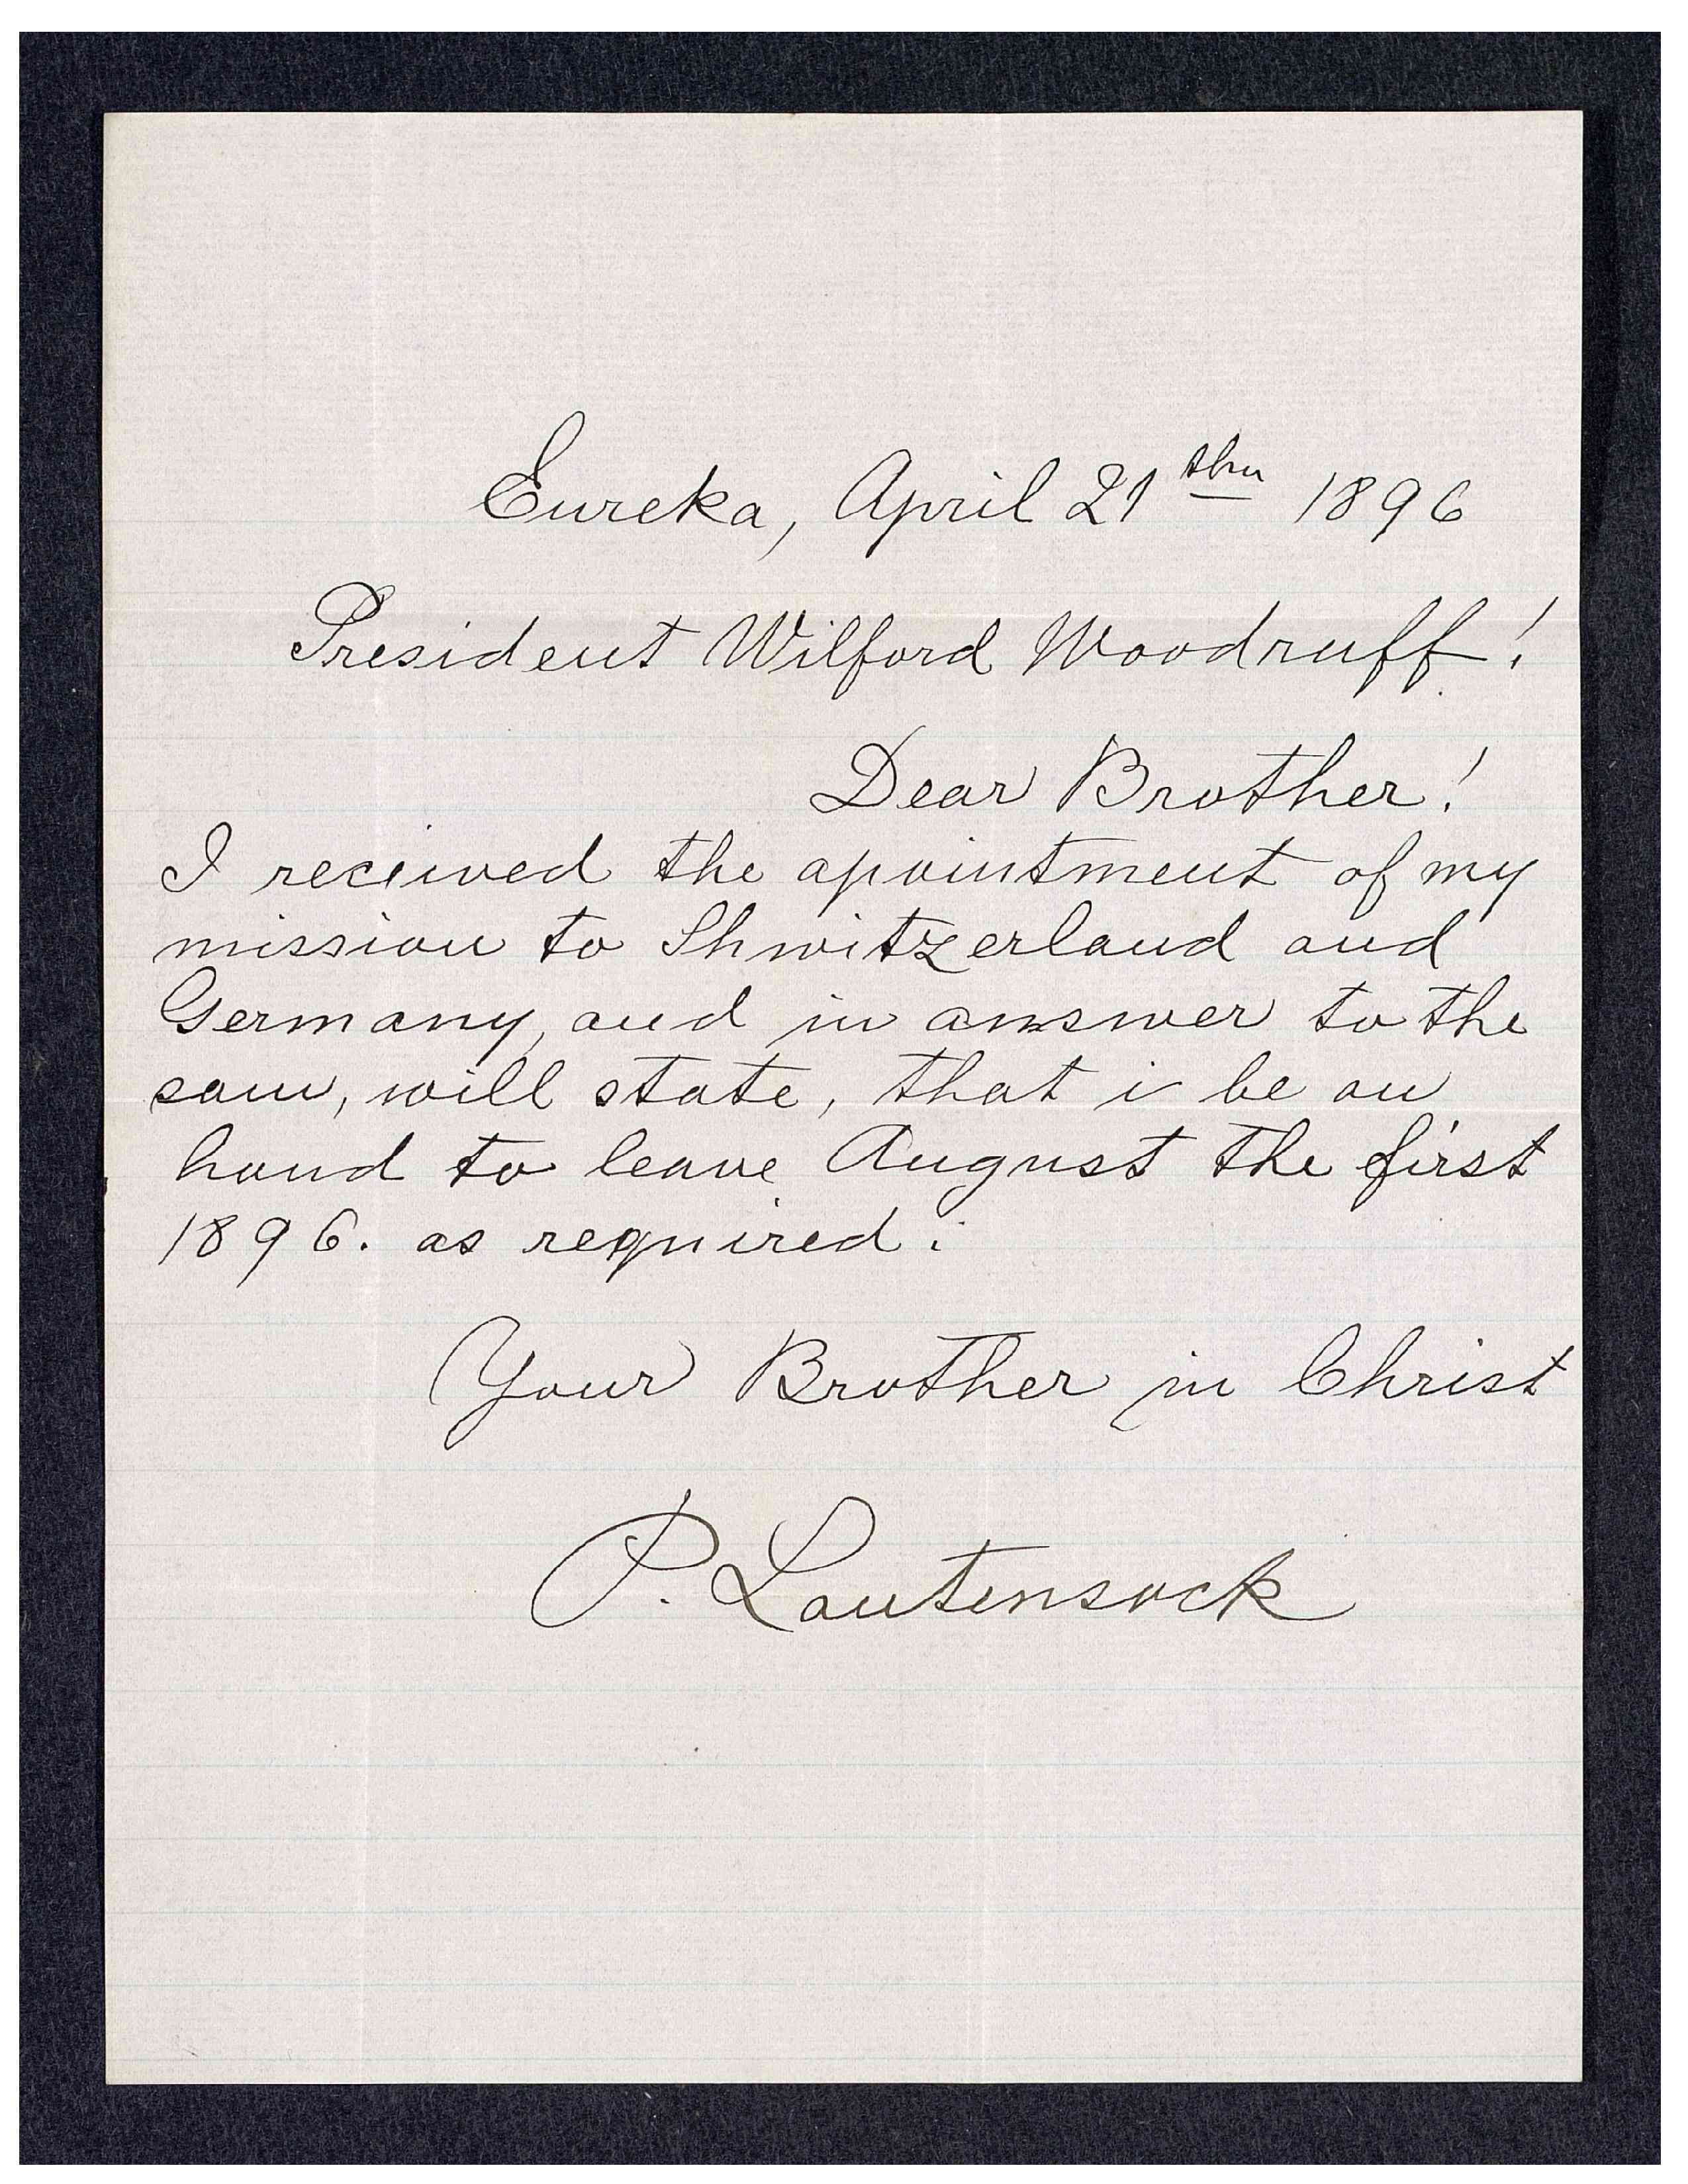 Eureka, April 21thn 1896
President Wilford Woodruff!
Dear Brother!
I recieved the apointment of my
mission to Shwitzerland and
Germany, and in answer to the
sam, will state, that i be on
hand to leave August the first
1896. as required.
Your Brother in Christ
P. Lautensock